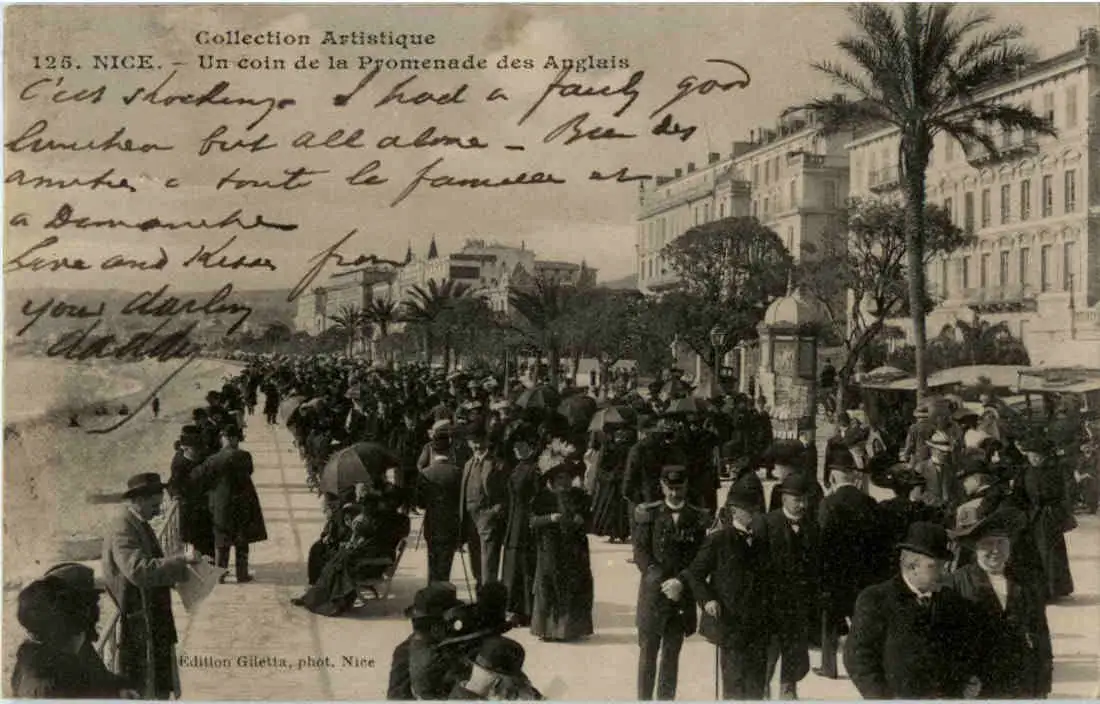 Collection Artistique
125. NICE. - Un coin de la Promenade des Anglais
C'est shocking - I had a fairly good
luncheon but all alone - Bien des
amitiés a toute la famille et
a Dimanche
Love and Kisses from
your darling
daddy
Edition Giletta, phot. Nice